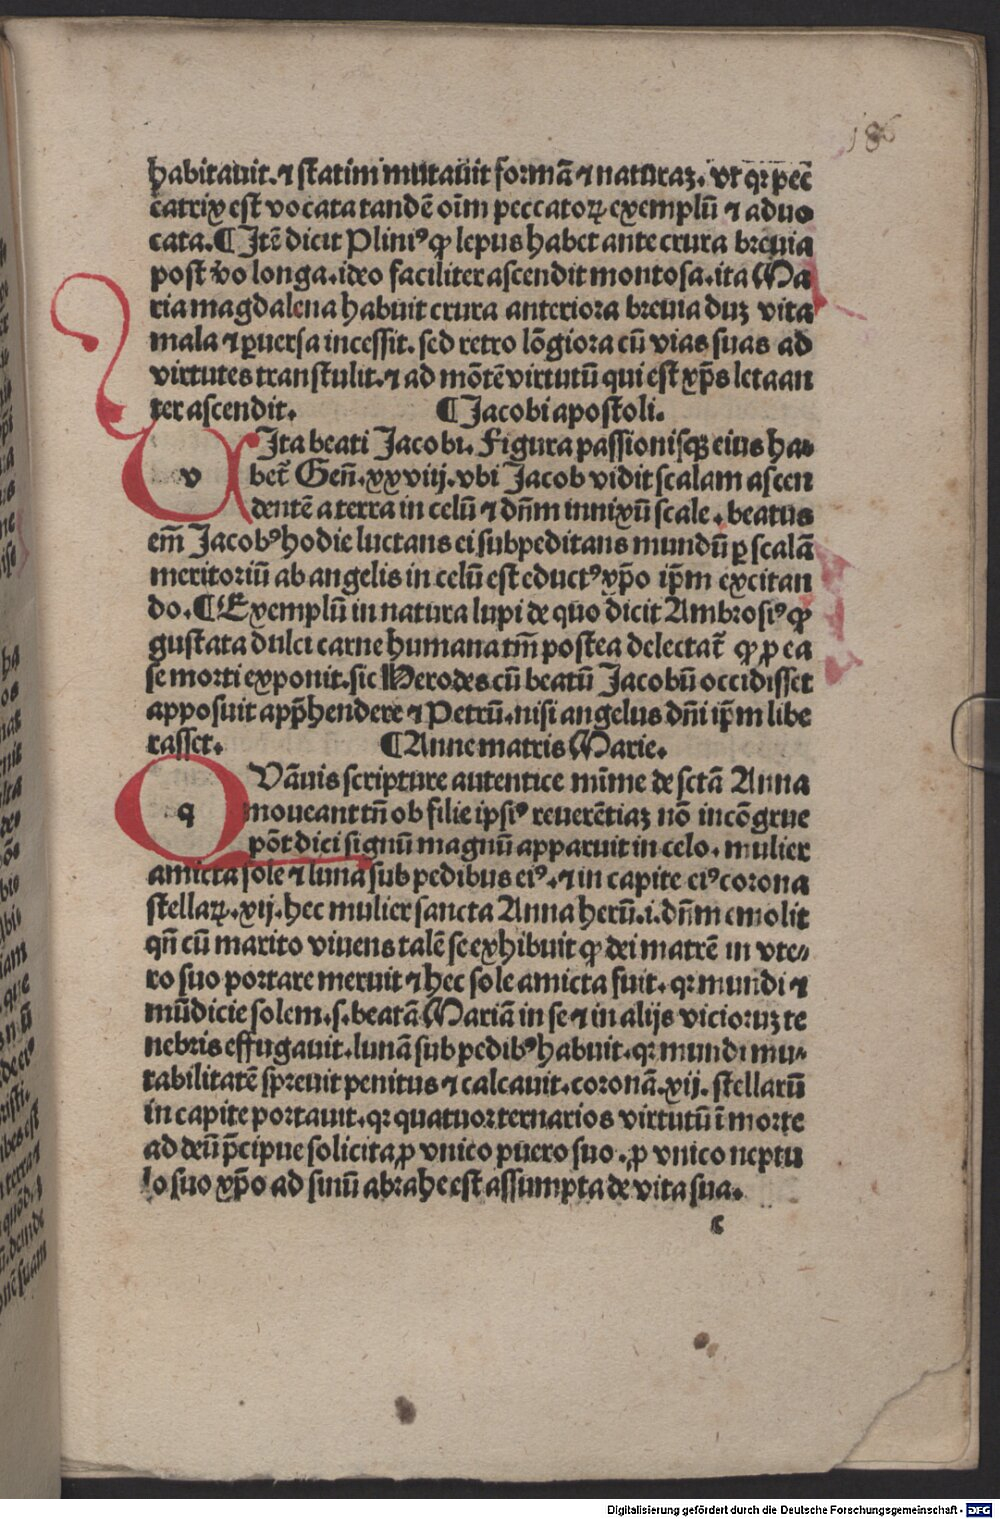 186
habitauit. ⁊ statim mutauit formā ⁊ naturaꝫ. vt qꝛ pecc̄
catrix est vocata tandē oīm peccatoꝝ exemplū ⁊ aduo
cata. ¶ Itē dicit Pliniꝰ ꝙ lepus habet ante crura breuia
post v̄o longa. ideo faciliter ascendit montosa. ita Ma
ria magdalena habuit crura anteriora breuia duꝫ vita
mala ⁊ ꝑuersa incessit. sed retro lōgiora cū vias suas ad
virtutes transtulit. ⁊ ad mōtē virtutū qui est xp̄s letaan
ter ascendit. ¶ Jacobi apostoli.
vIta beati Jacobi. Figura passionisqꝫ eius ha⸗
bet̄ Gen̄. xxviij. vbi Jacob vidit scalam ascen
dentē a terra in celū ⁊ dn̄m innixū scale. beatus
em̄ Jacobꝰ hodie luctans ei subpeditans mundū ꝑ scalā
meritoriū ab angelis in celū est eductꝰ xp̄o ip̄m excitan
do. ¶ Exemplū in natura lupi de quo dicit Ambrosiꝰ ꝙ
gustata dulci carne humana tm̄ postea delectat̄ ꝙ ꝓ ea
se morti exponit. sic Herodes cū beatū Jacobū occidisset
apposuit app̄hendere ⁊ Petrū. nisi angelus dn̄i ip̄m libe
rasset. ¶ Anne matris Marie.
qVāuis scripture autentice mīme de sctā Anna
moueant tn̄ ob filie ipsiꝰ reuerētiaꝫ nō incōgrue
pōt dici signū magnū apparuit in celo. mulier
amicta sole ⁊ luna sub pedibus eiꝰ. ⁊ in capite eiꝰ corona
stellaꝝ. xij. hec mulier sancta Anna herū. i. dn̄m emolit
qn̄ cū marito viuens talē se exhibuit ꝙ dei matrē in vte⸗
ro suo portare meruit ⁊ hec sole amicta fuit. qꝛ mundi ⁊
mūdicie solem. s. beatā Mariā in se ⁊ in alijs vicioruꝫ te
nebris effugauit. lunā sub pedibꝰ habuit. qꝛ mundi mu⸗
tabilitatē spreuit penitus ⁊ calcauit. coronā. xij. stellarū
in capite portauit. qꝛ quatuor ternarios virtutū ī morte
ad deū p̄cipue solicita, ꝓ vnico puero suo. ꝓ vnico neptu
lo suo xp̄o ad sinū abrahe est assumpta de vita sua.
c
Digitalisierung gefördert durch die Deutsche Forschungsgemeinschaft - DFG